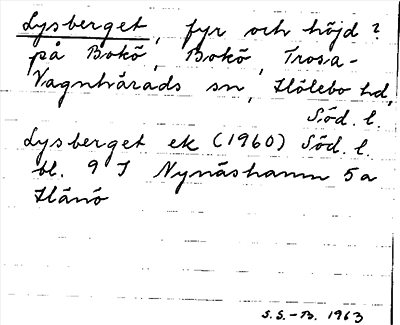 Lysberget, fyr och höjd?
på Bokö, Bokö, Trosa-
Vagnhärads sn, Hölebo hd,
Söd. l.
Lysberget ek (1960) Söd. l.
bl. 9 I Nynäshamn 5a
Hånö
S.S.-B. 1963